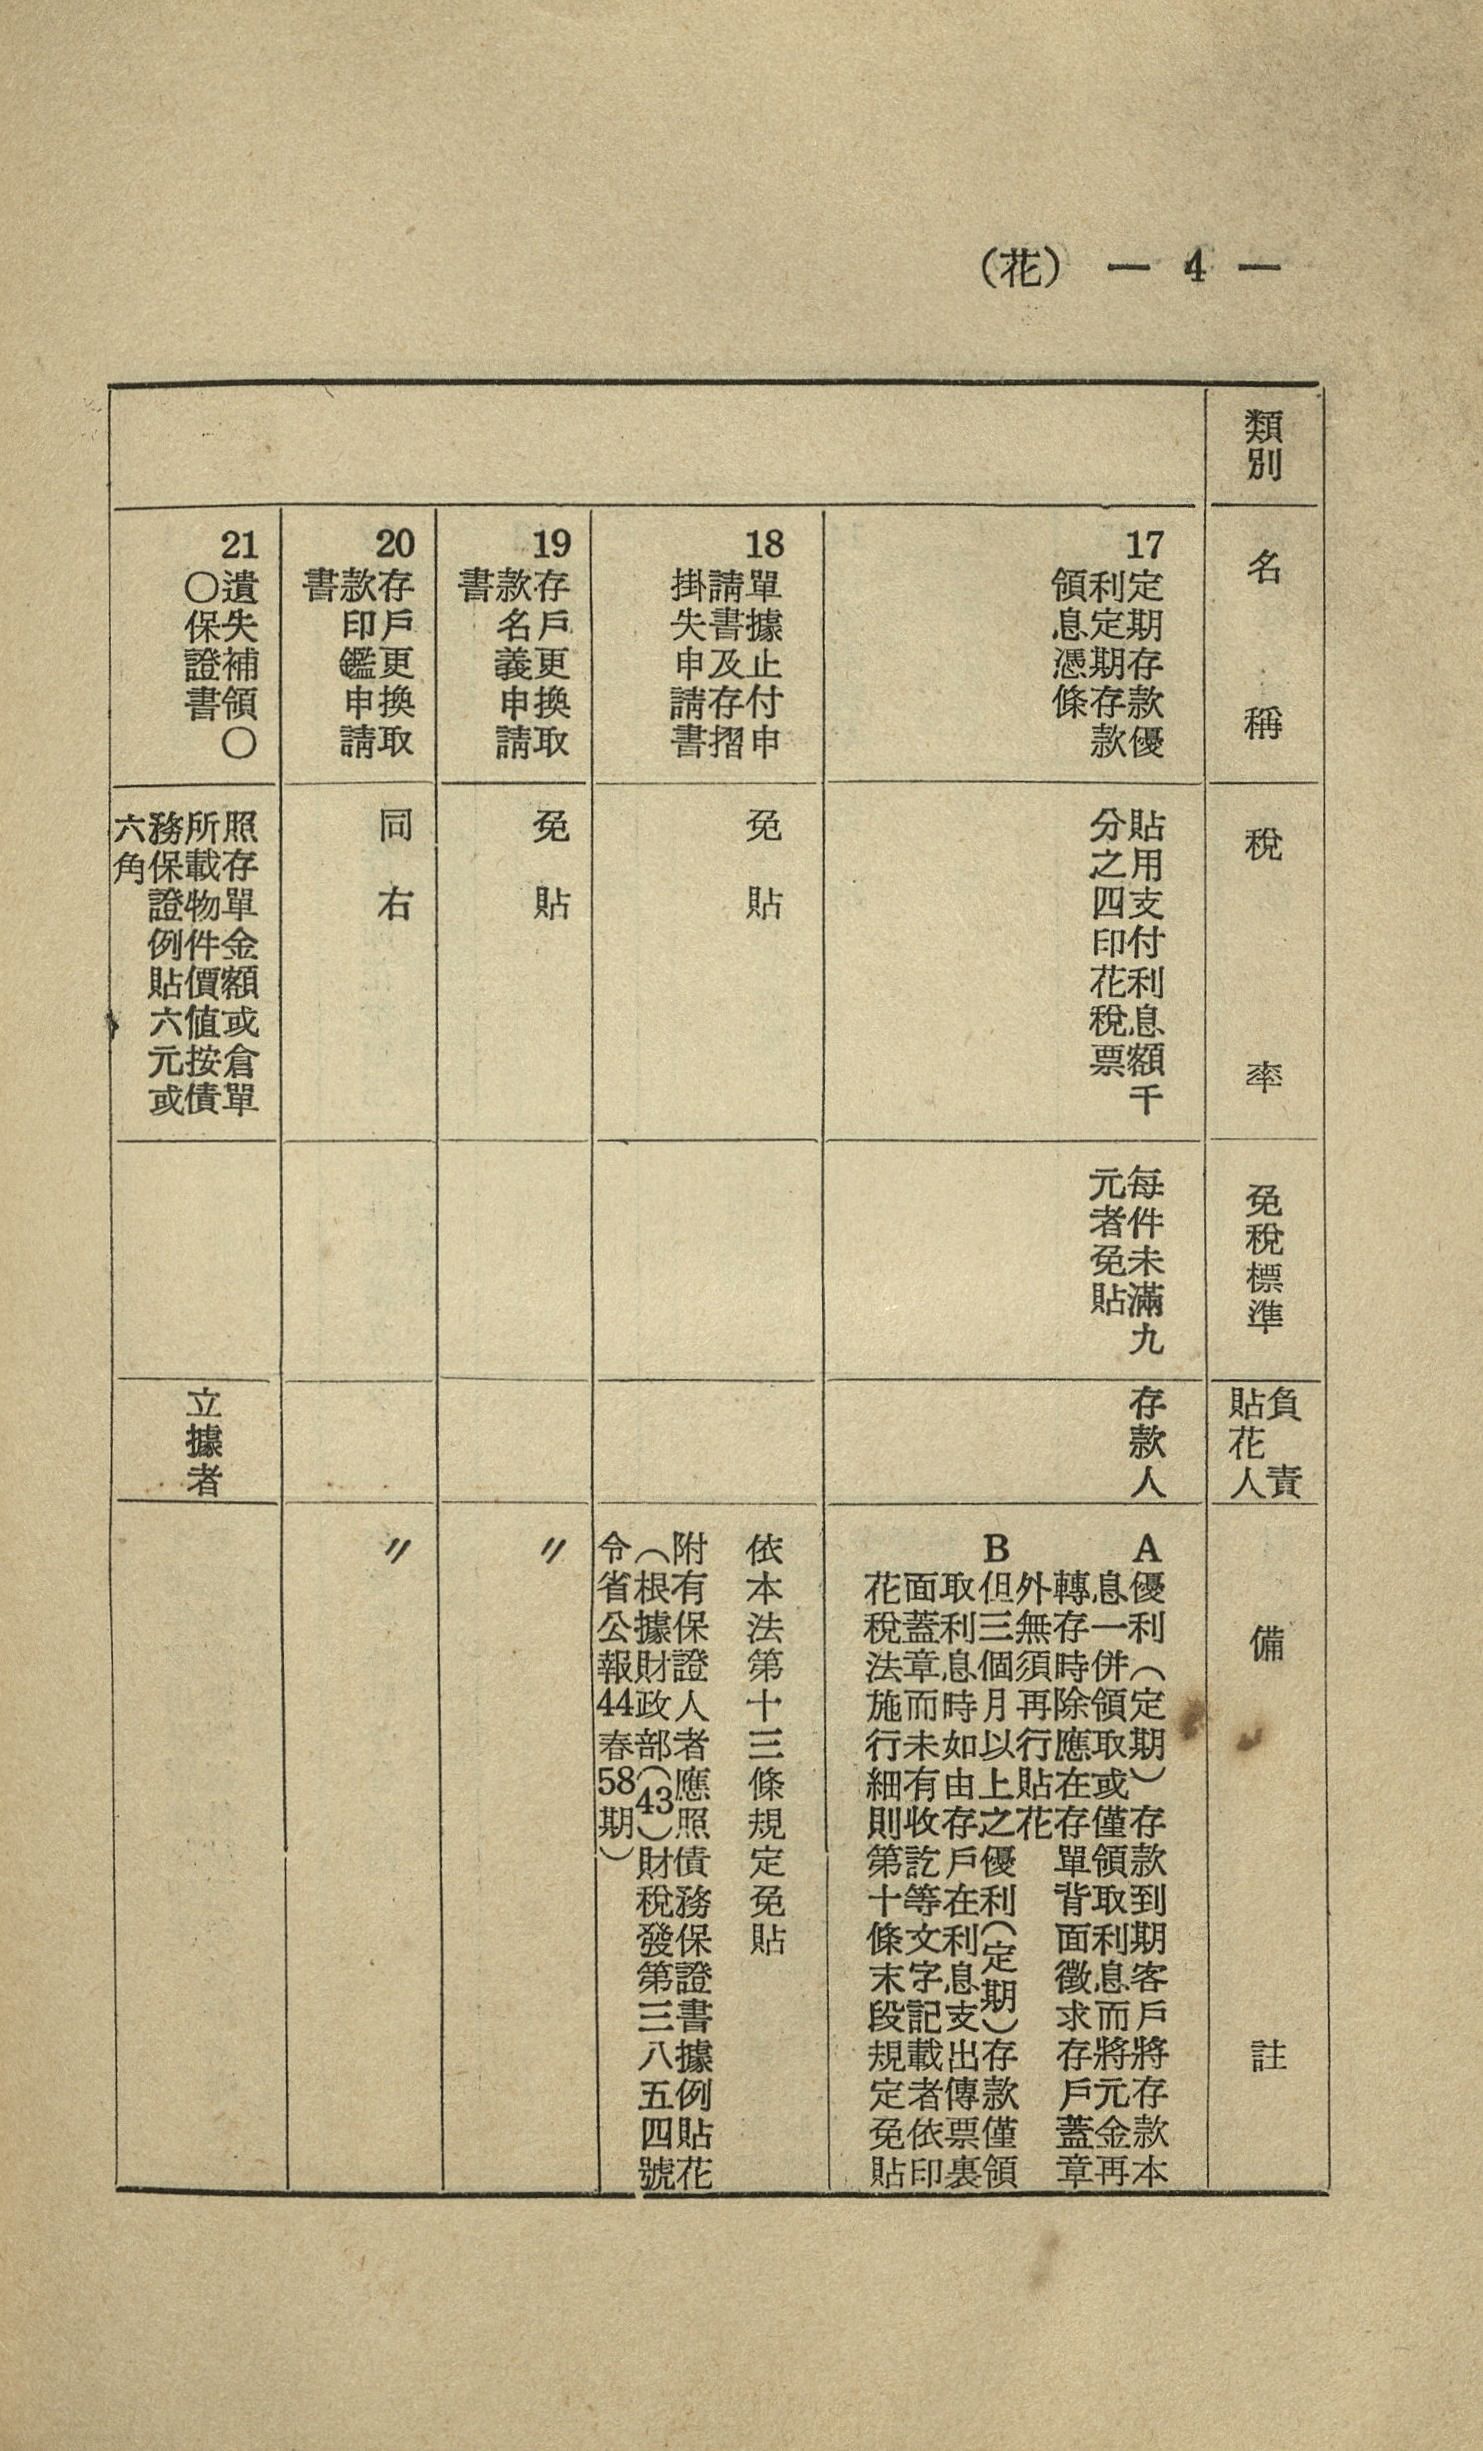 (花) — 4 —
類別
名稱
稅率
免稅標準
負責
貼花人
備註
17
定期存款優
利定期存款
領息憑條
貼用支付利息額千
分之四印花稅票
每件未滿九
元者免貼
存款人
A
優利（定期）存款到期客戶將存款本
息一併領取或僅領取利息而將元金再
轉存時除應在存單背面徵求存戶蓋章
外無須再行貼花
B
但三個月以上之優利（定期）存款僅領
取利息時如由存戶在利息支出傳票裏
面蓋章而未有收訖等文字記載者依印
花稅法施行細則第十條末段規定免貼
18
單據止付申
請書及存摺
掛失申請書
免貼
依本法第十三條規定免貼
附有保證人者應照債務保證書據例貼花
（根據財政部（43）財稅發第三八五四號
令省公報44春58期）
19
存戶更換取
款名義申請
書
免貼
〃
20
存戶更換取
款印鑑申請
書
同右
〃
21
遺失補領〇
〇保證書
照存單金額或倉單
所載物件價值按債
務保證例貼六元或
六角
立據者